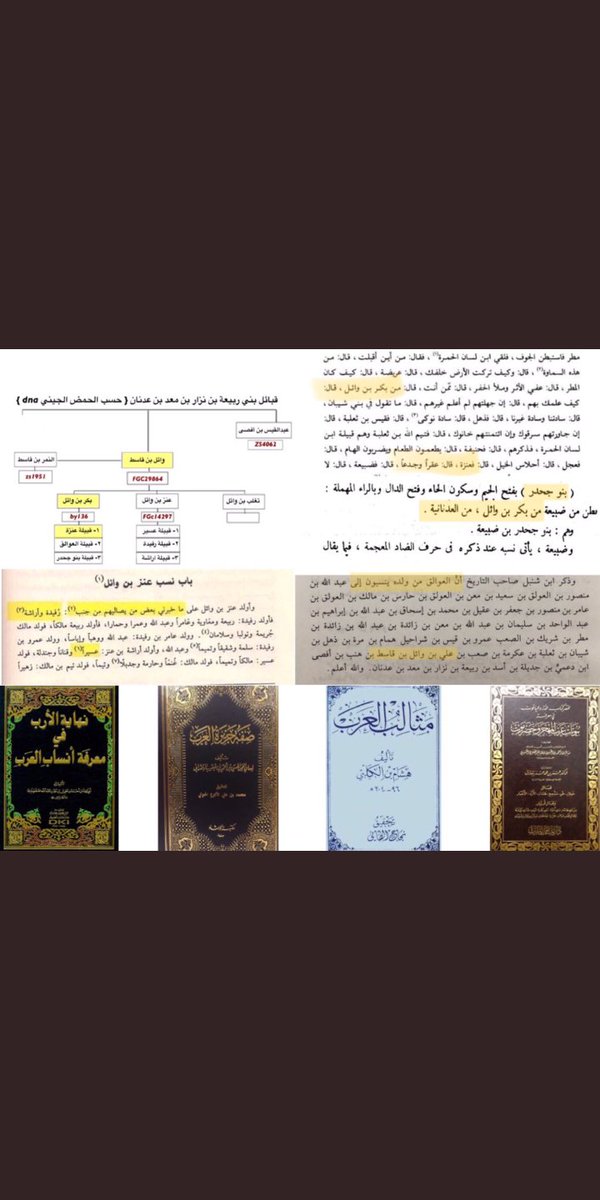 قبائل بني ربيعة بن نزار بن معد بن عدنان { حسب الحمض الجيني dna }
عبدالقيس بن افصى
ZS4062
وائل بن قاسط
FGC29864
النمر بن قاسط
zs1951
تغلب بن وائل
عنز بن وائل
FGc14297
١- قبيلة عسير
٢- قبيلة رفيدة
٣- قبيلة اراشة
بكر بن وائل
by136
١- قبيلة عنزة
٢- قبيلة العوالق
٣- قبيلة بنو جحدر
مطر فاستبطن الجوف، فلقي ابن لسان الحمرة، فقال: من أين أقبلت، قال: من
هذه السماوة، قال: وكيف تركت الأرض خلفك، قال: عريضة، قال: كيف كان
المطر، قال: عفي الأثر وملأ الحفر، قال: ممّن أنت، قال: من بكر بن وائل، قال:
كيف علمك بهم، قال: إن جهلتهم لم أعلم غيرهم، قال: ما تقول في بني شيبان،
قال: سادتنا وسادة غيرنا، قال: فذهل، قال: سادة نوكى، قال: فقيس بن ثعلبة، قال:
إن جاورتهم سرقوك وإن ائتمنتهم خانوك، قال: فتيم الله بن ثعلبة وهم قبيلة ابن
لسان الحمرة، فذكرهم، قال: فحنيفة، قال: يطعمون الطعام ويضربون الهام، قال:
فعجل، قال: أحلاس الخيل، قال: فعنزة، قال: عقراً وجدعاً، قال: فضبيعة، قال: لا
( بنو جحدر ) بفتح الجيم وسكون الحاء وفتح الدال وبالراء المهملة :
بطن من ضبيعة من بكر بن وائل ، من العدنانية .
وهم : بنو جحدر بن ضبيعة .
وضبيعة ، يأتى نسبه عند ذكره فى حرف الضاد المعجمة ، فيما يقال
باب نسب عنز بن وائل (١)
وأولد عنز بن وائل على ما خبرني بعض من يصاليهم من جنب(٢): رُفيدة وأراشة(٣)
فأولد رفيدة: ربيعة ومعاوية وغامراً وعبد الله وعمرا وحمارا، فأولد ربيعة مالكاً، فولد مالك
جُريمة وتولبا وسلامان(٤). وولد عامر بن رفيدة: عبد الله ووهباً وإياساً، وولد عمرو بن
رفيدة: سلمة وشقيقاً وتميماً(٥) وعبد الله، وأولد أراشة بن عنز: عسيراً(٦) وقناناً وجندلة، فولد
عسير: مالكاً وتميماً، فولد مالك: غُنماً وحارمة وجديلاً(٧) وتيماً، فولد تيم بن مالك: زهيراً
وذكر ابن شنبل صاحب التاريخ أنَّ العوالق من ولده ينتسبون إلى عبد الله بن
منصور بن العولق بن سعيد بن معن بن العولق بن حارس بن مالك بن العولق بن
عامر بن منصور بن جعفر بن عقيل بن محمد بن إسحاق بن عبد الله بن إبراهيم بن
عبد الواحد بن سليمان بن عبد الله بن معن بن زائدة بن عبد الله بن زائدة بن
مطر بن شريك بن الصعب عمرو بن قيس بن شراحيل همام بن مرة بن ذهل بن
شيبان بن ثعلبة بن عكرمة بن صعب بن علي بن وائل بن قاسط بن هنب بن أفصى
ابن دعميّ بن جديلة بن أسد بن ربيعة بن نزار بن معد بن عدنان. والله أعلم.
نهاية الأرب
في
معرفة أنساب العرب
DKI
صفة جزيرة العرب
مثالب العرب
تأليف
هشام بن الكلبي
٩٦ - ٢٠٤هـ
تحقيق
نجاح الطائي